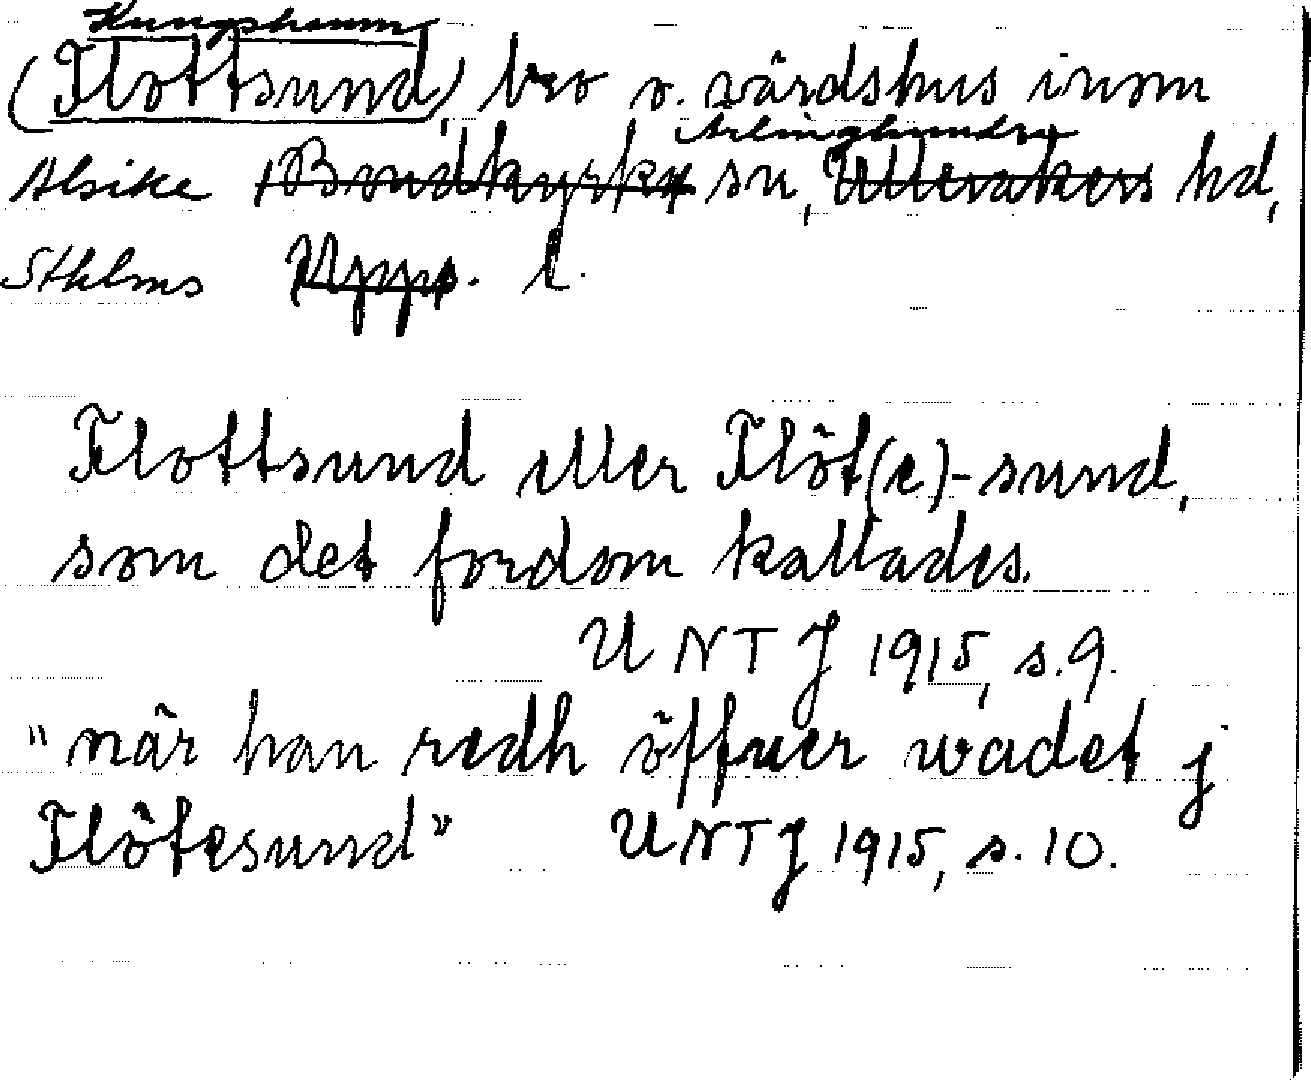 Kungshamn
(Flottsund), bro o. värdshus inom
Ärlinghundra
Alsike Bondkyrka sn, Ulleråkers hd,
Sthlms Upps. l.
Flottsund eller Flöt(e)-sund,
som det fordom kallades.
UNTJ 1915, s. 9.
"när han redh öffuer wadet j
Flötesund" UNTJ 1915, s. 10.